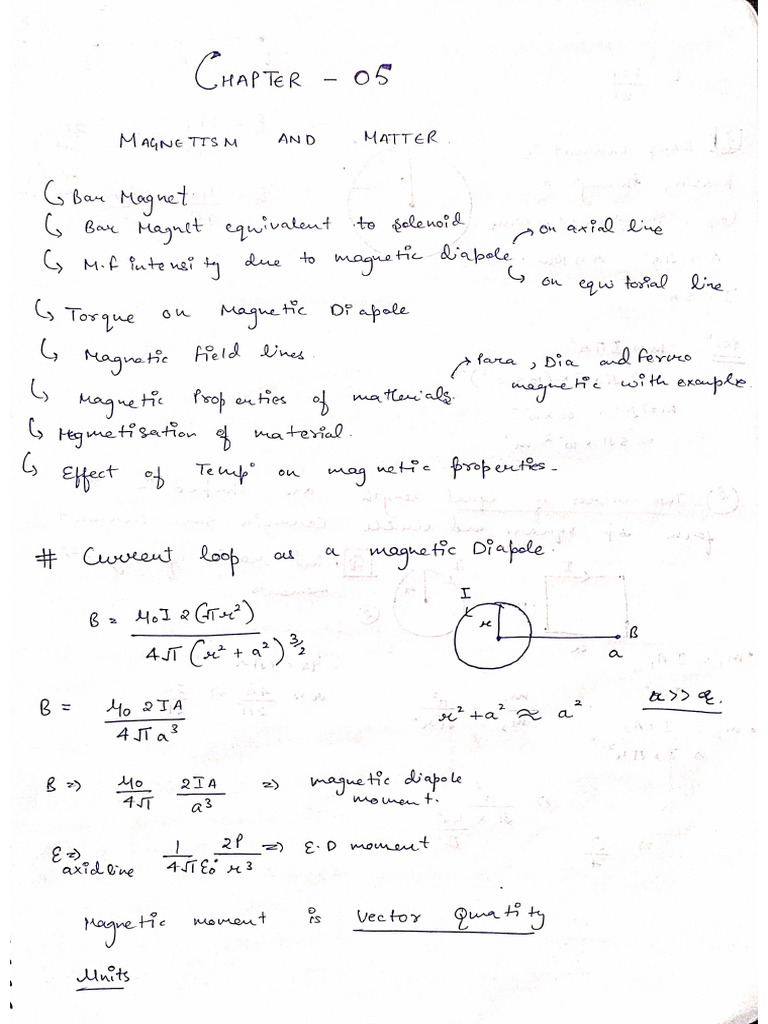 CHAPTER - 05
MAGNETISM AND MATTER.
↳ Bar Magnet.
↳ Bar Magnet equivalent to solenoid
↳ M.f intensity due to magnetic diapole → on axial line
↳ on equitorial line
↳ Torque on Magnetic Diapole
↳ Magnetic field lines.
↳ Magnetic Properties of materials. → Para, Dia and ferro
magnetic with example.
↳ Megnetisation of material.
↳ Effect of Temp° on magnetic properties.
# Current loop as a magnetic Diapole.
B = μ₀I 2(πr²) / 4π(r² + a²)^3/2
I r B a
B = μ₀ 2IA / 4πa³
r² + a² ≈ a² a >> r.
B ⇒ μ₀/4π 2IA/a³ ⇒ magnetic diapole
moment.
E ⇒ 1/4πε₀ 2P/r³ ⇒ E.D moment
axial line
Magnetic moment is Vector Quatity
Units